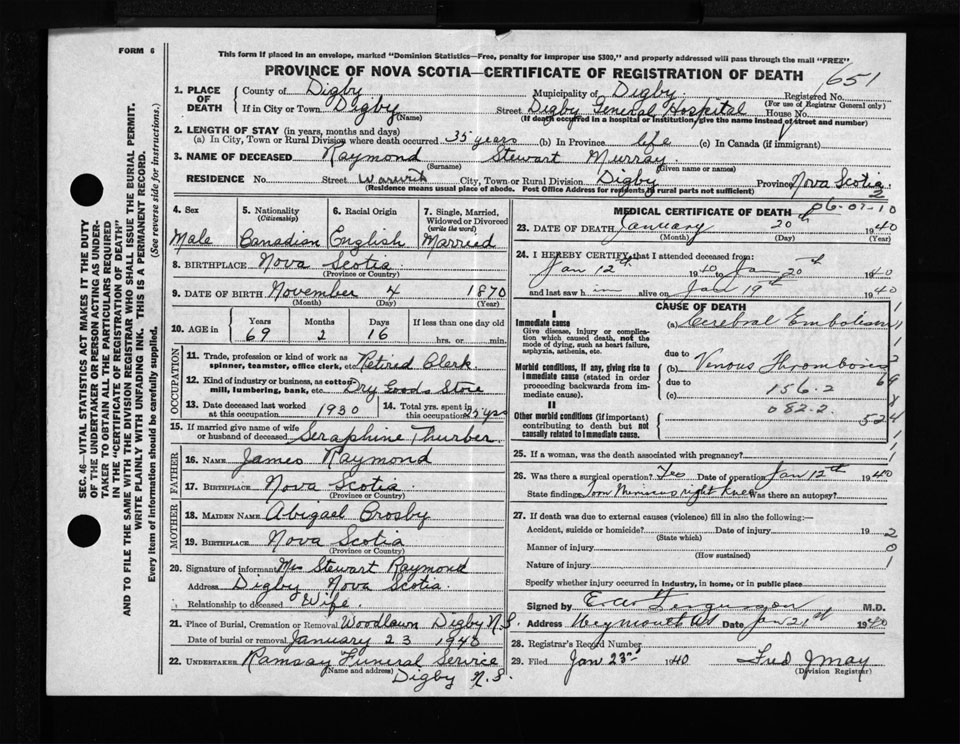 FORM 6
This form if placed in an envelope, marked "Dominion Statistics—Free, penalty for improper use $300," and properly addressed will pass through the mail "FREE".
PROVINCE OF NOVA SCOTIA—CERTIFICATE OF REGISTRATION OF DEATH
651
1. PLACE OF DEATH
County of Digby Municipality of Digby Registered No.
(For use of Registrar General only)
If in City or Town Digby Street Digby General Hospital House No.
(Name) (If death occurred in a hospital or institution, give the name instead of street and number)
2. LENGTH OF STAY (in years, months and days)
(a) In City, Town or Rural Division where death occurred 35 years (b) In Province life (c) In Canada (if immigrant)
3. NAME OF DECEASED Raymond Stewart Murray
(Surname) (Given name or names)
RESIDENCE No. Street Warwick City, Town or Rural Division Digby Province Nova Scotia
(Residence means usual place of abode. Post Office Address for residents in rural parts not sufficient)
2
4. Sex
Male
5. Nationality (Citizenship)
Canadian
6. Racial Origin
English
7. Single, Married, Widowed or Divorced (write the word)
Married
8. BIRTHPLACE Nova Scotia
(Province or Country)
9. DATE OF BIRTH November 4 1870
(Month) (Day) (Year)
10. AGE in
Years Months Days If less than one day old
69 2 16 hrs. or min.
OCCUPATION
11. Trade, profession or kind of work as spinner, teamster, office clerk, etc. Retired Clerk
12. Kind of industry or business, as cotton mill, lumbering, bank, etc. Dry Goods Store
13. Date deceased last worked at this occupation 1930
14. Total yrs. spent in this occupation 25 yrs
15. If married give name of wife or husband of deceased Seraphine Thurber
FATHER
16. NAME James Raymond
17. BIRTHPLACE Nova Scotia
(Province or Country)
MOTHER
18. MAIDEN NAME Abigael Crosby
19. BIRTHPLACE Nova Scotia
(Province or Country)
20. Signature of informant Mrs Stewart Raymond
Address Digby Nova Scotia
Relationship to deceased Wife
21. Place of Burial, Cremation or Removal Woodlawn Digby N.S.
Date of burial or removal January 23 1940
22. UNDERTAKER Ramsay Funeral Service
(Name and address) Digby N.S.
MEDICAL CERTIFICATE OF DEATH 06-07-10
23. DATE OF DEATH January 20th 1940
(Month) (Day) (Year)
24. I HEREBY CERTIFY that I attended deceased from:
Jan 12th 1940 to Jan 20th 1940
and last saw him alive on Jan 19th 1940
CAUSE OF DEATH
I
Immediate cause
Give disease, injury or complication which caused death, not the mode of dying, such as heart failure, asphyxia, asthenia, etc.
(a) Cerebral Embolism
due to
Morbid conditions, if any, giving rise to immediate cause (stated in order proceeding backwards from immediate cause).
(b) Venous Thrombosis
due to
(c) 156.2
082.2
II
Other morbid conditions (important) contributing to death but not causally related to immediate cause.
25. If a woman, was the death associated with pregnancy?
26. Was there a surgical operation? Yes Date of operation Jan 12th 1940
State findings Torn Meniscus right Knee Was there an autopsy?
27. If death was due to external causes (violence) fill in also the following:—
Accident, suicide or homicide? Date of injury 19
(State which)
Manner of injury
(How sustained)
Nature of injury
Specify whether injury occurred in industry, in home, or in public place
Signed by Ferguson M.D.
Address Weymouth NS Date Jan 21st 1940
28. Registrar's Record Number
29. Filed Jan 23rd 1940 Fred J May
(Division Registrar)
SEC. 46—VITAL STATISTICS ACT MAKES IT THE DUTY
OF THE UNDERTAKER OR PERSON ACTING AS UNDER-
TAKER TO OBTAIN ALL THE PARTICULARS REQUIRED
IN THE "CERTIFICATE OF REGISTRATION OF DEATH"
AND TO FILE THE SAME WITH THE DIVISION REGISTRAR WHO SHALL ISSUE THE BURIAL PERMIT.
WRITE PLAINLY WITH UNFADING INK. THIS IS A PERMANENT RECORD.
Every item of information should be carefully supplied. (See reverse side for instructions.)